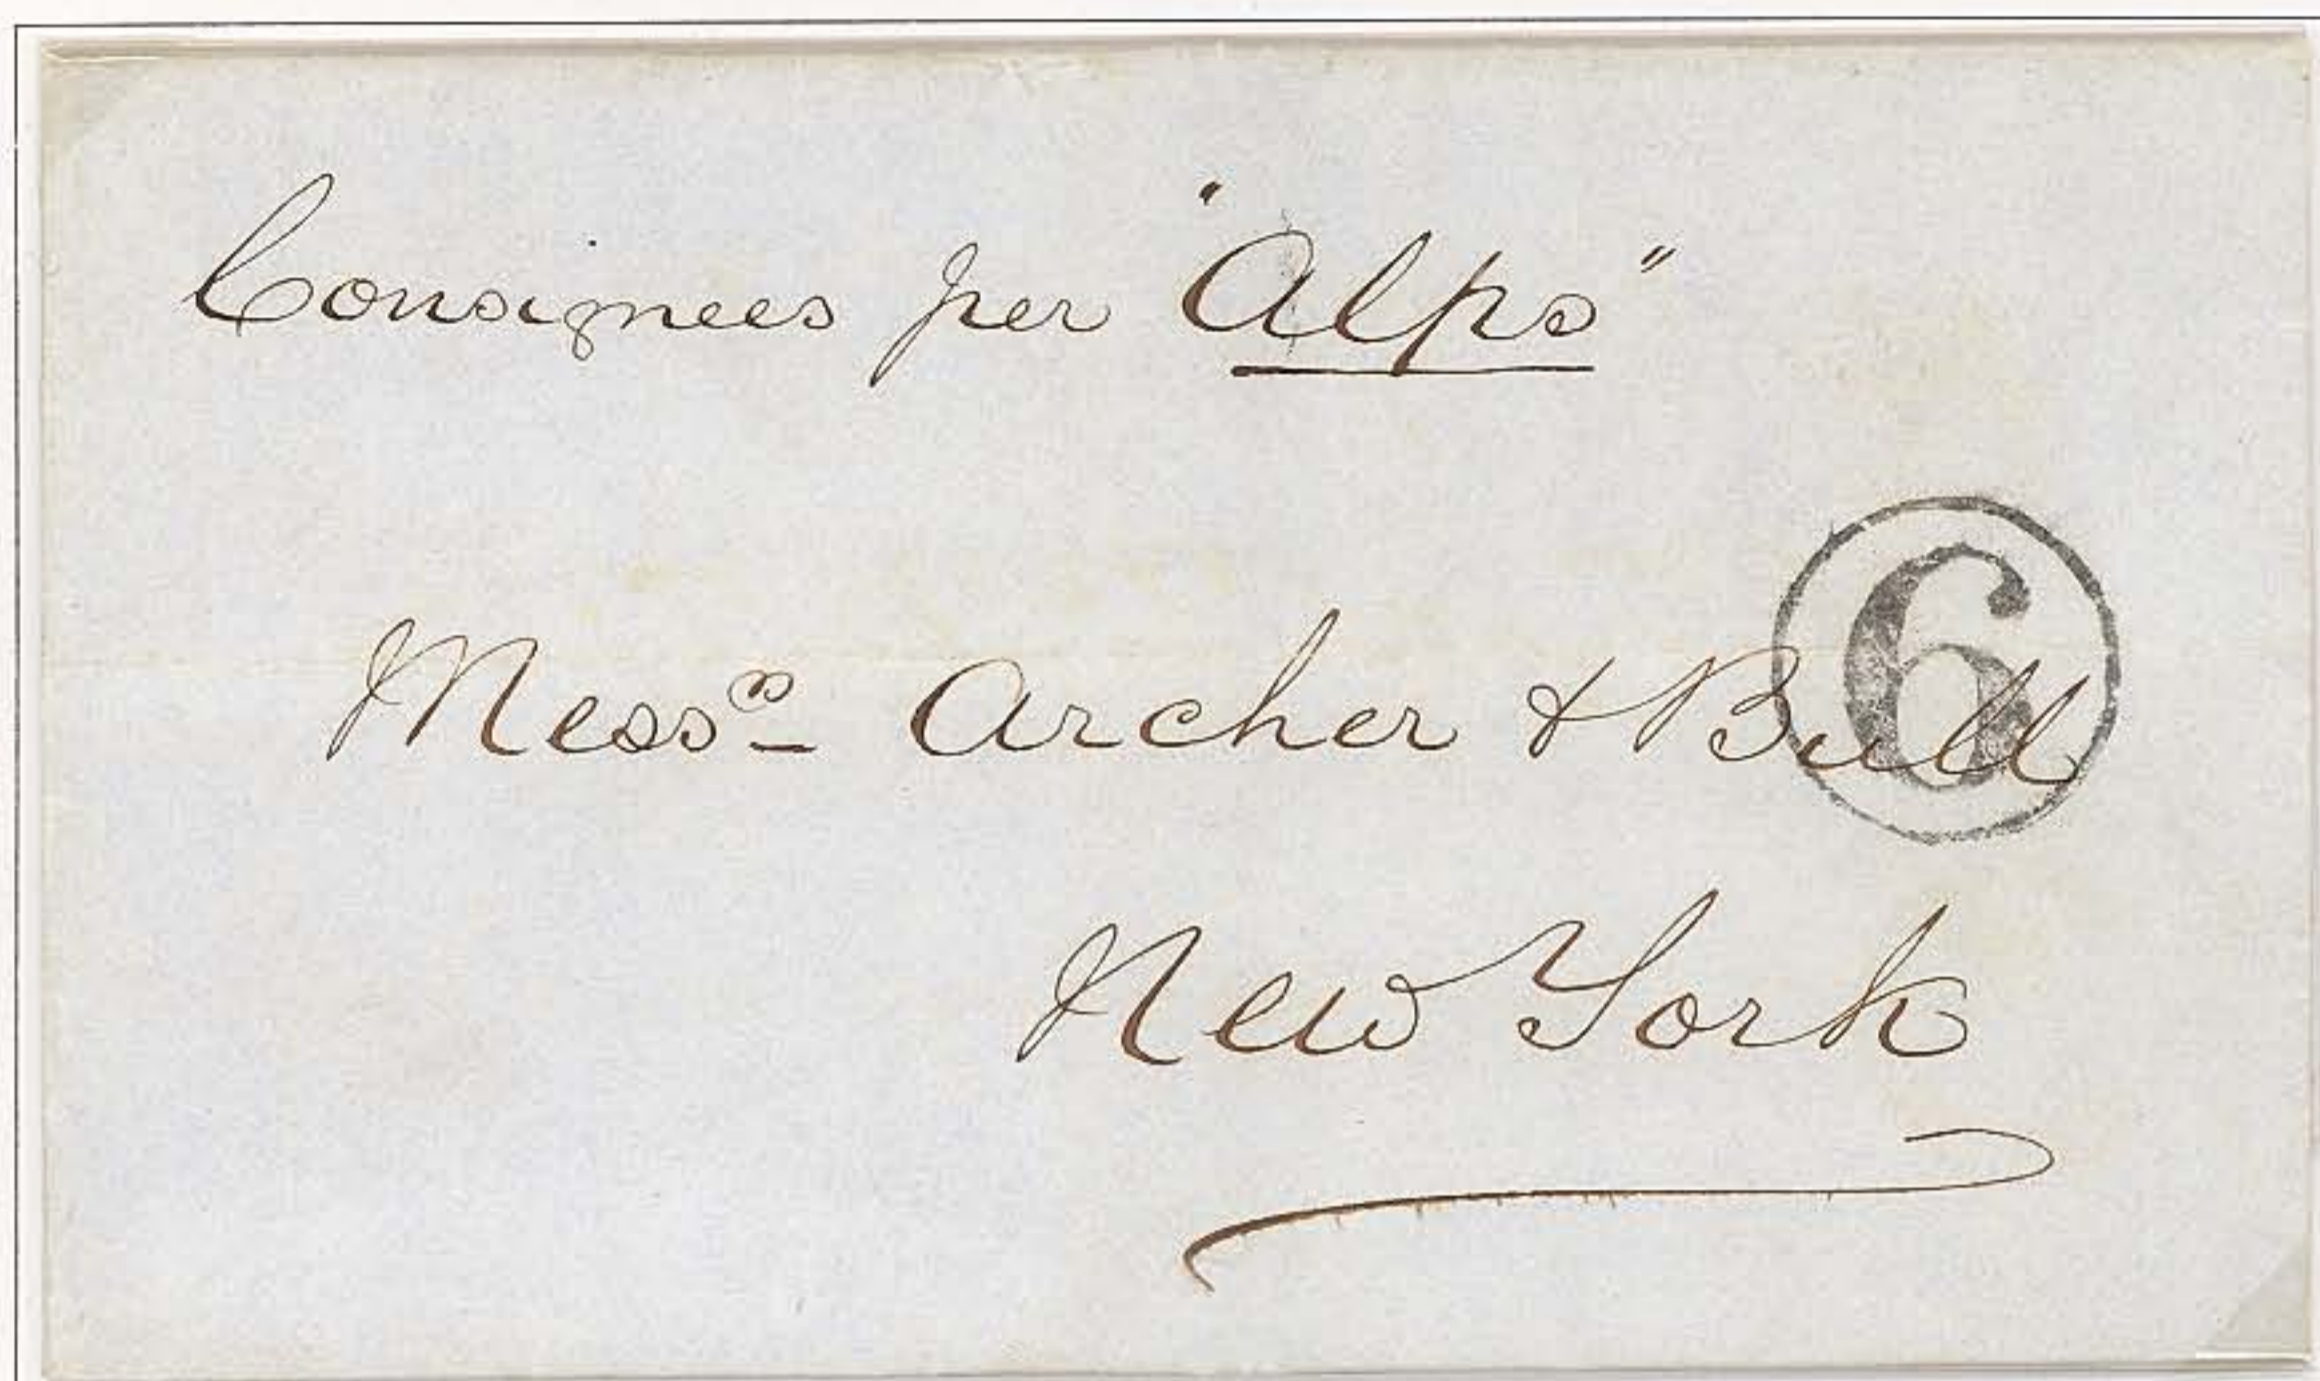 Consignees per "Alps"
6
Messrs Archer & Bull
New York